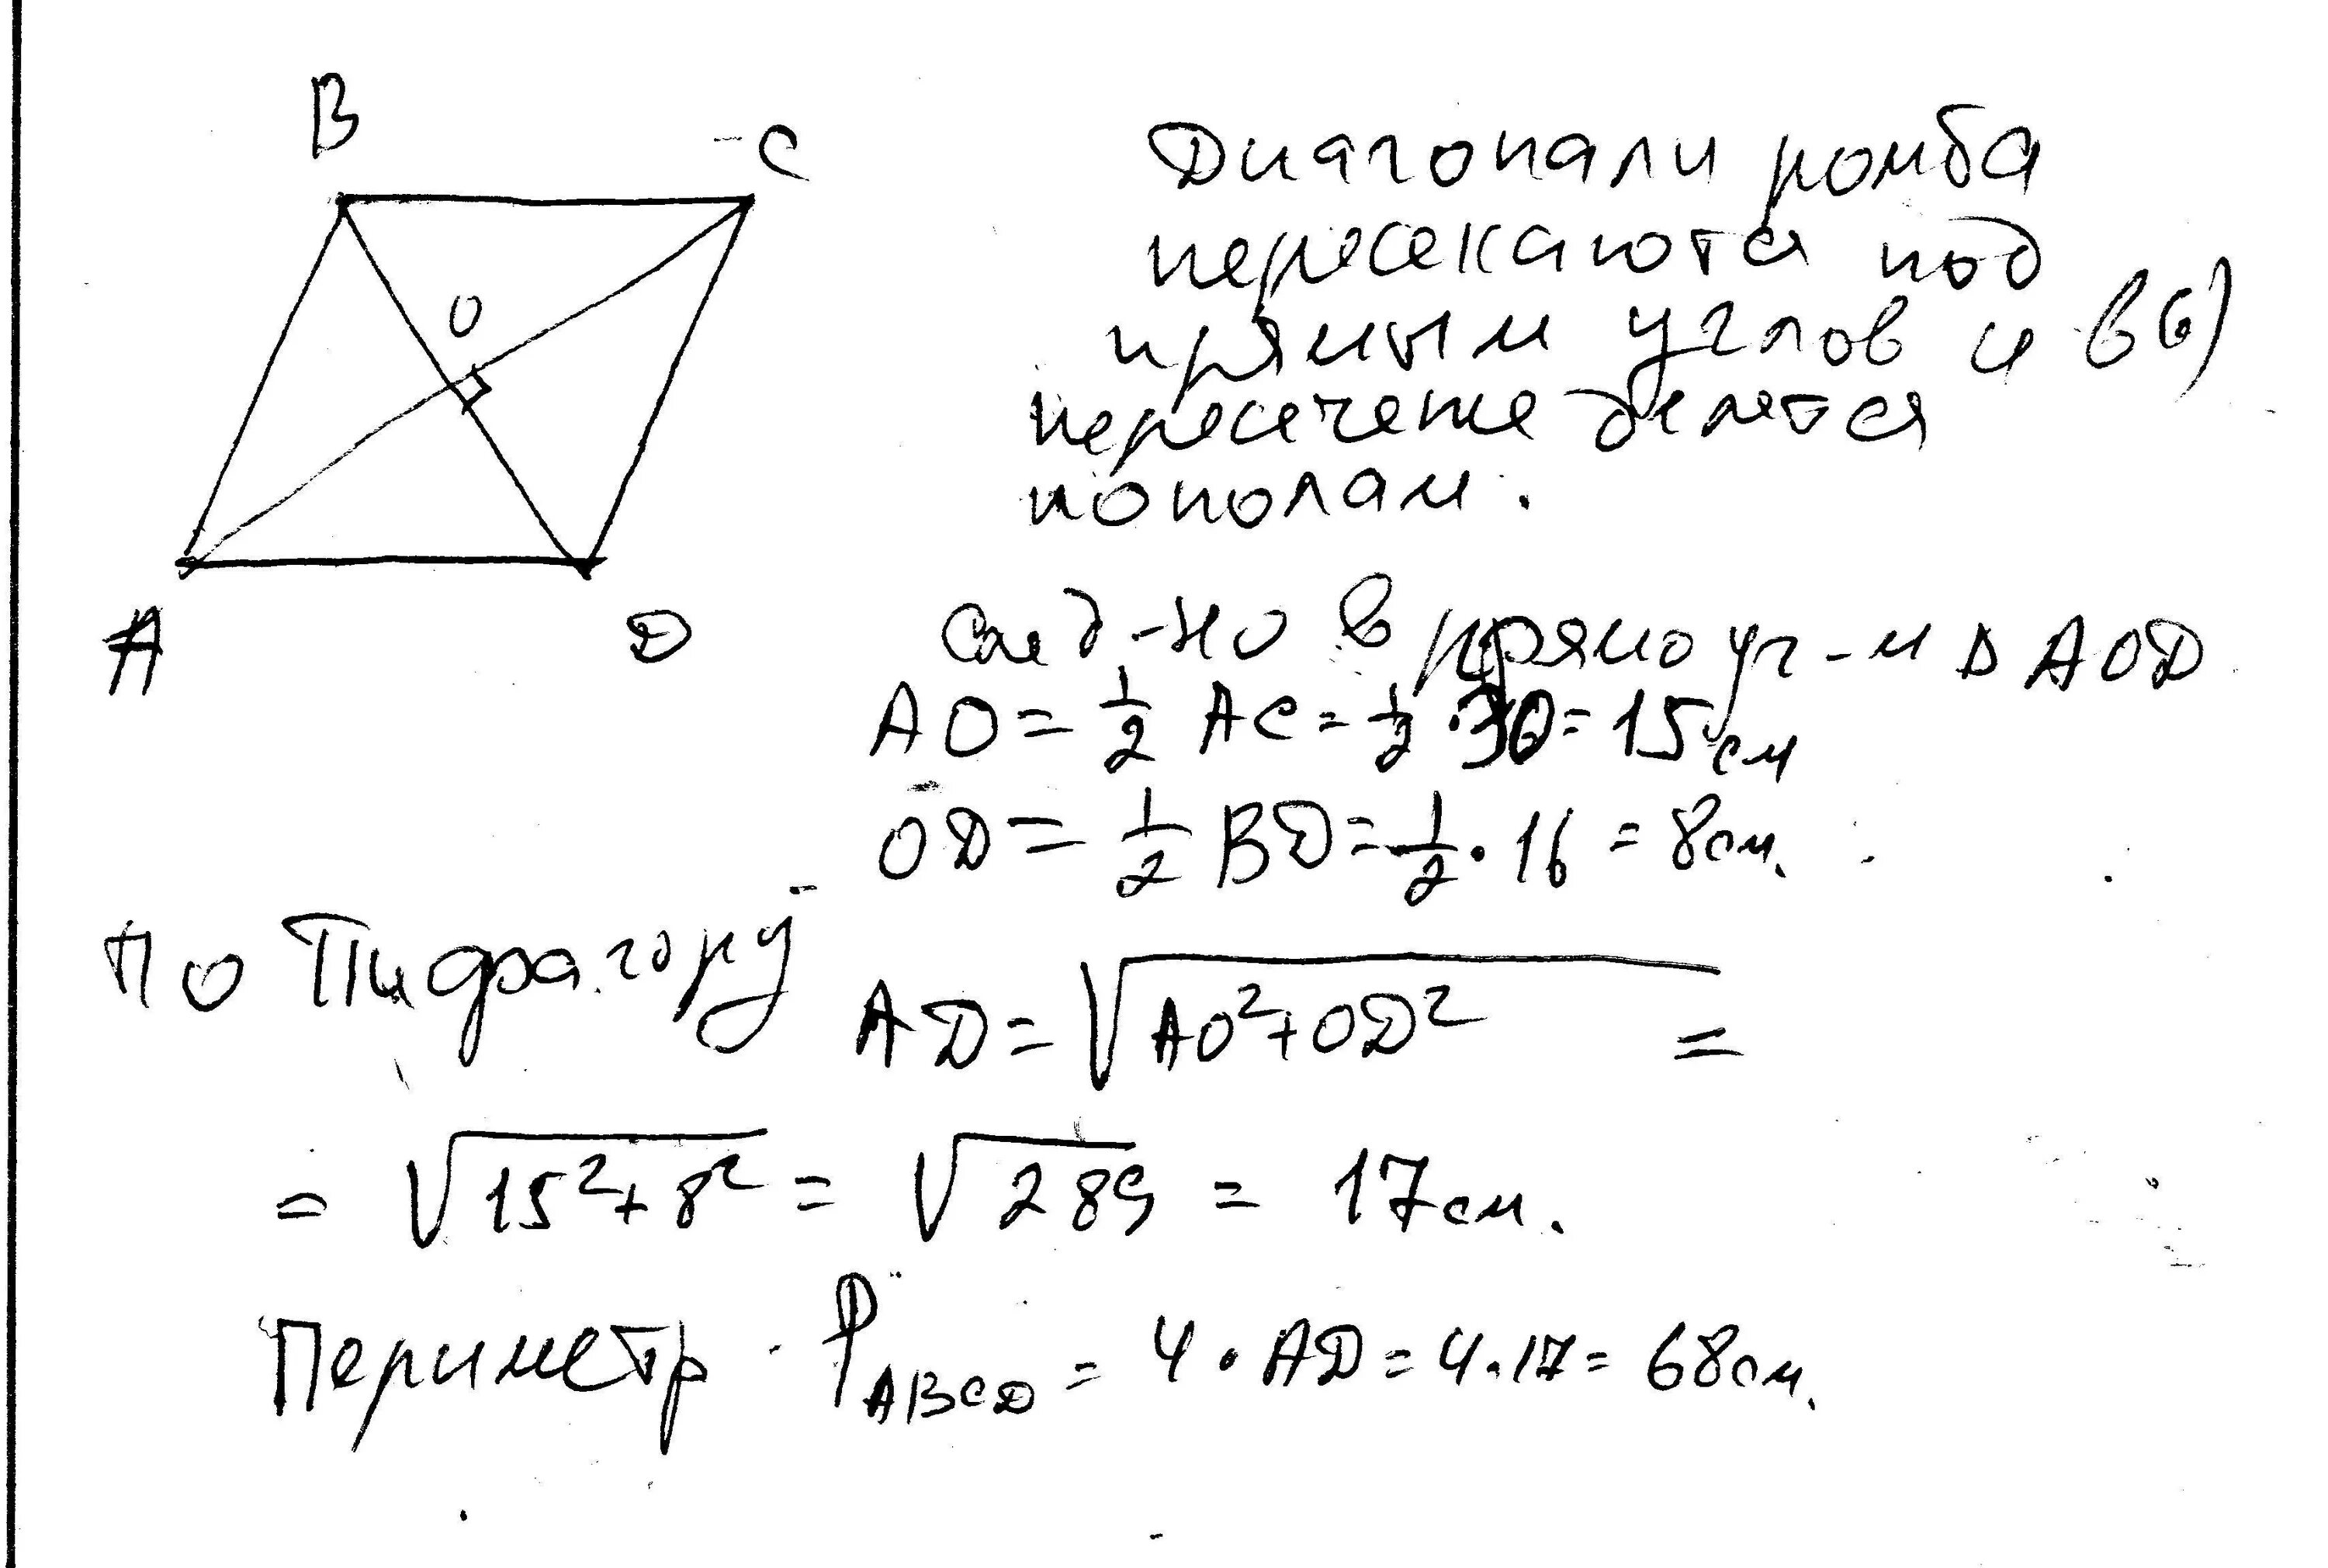 B
C
O
A
D
Диагонали ромба
пересекаются под
прямым углов и в(6)
пересечение делятся
пополам.
След-но в прямоуг-м Δ AOD
AO = 1/2 AC = 1/2 · 30 = 15 см
OD = 1/2 BD = 1/2 · 16 = 8 см.
По Пифагору AD = √(AO² + OD²) =
= √(15² + 8²) = √289 = 17 см.
Периметр P ABCD = 4 · AD = 4 · 17 = 68 см.